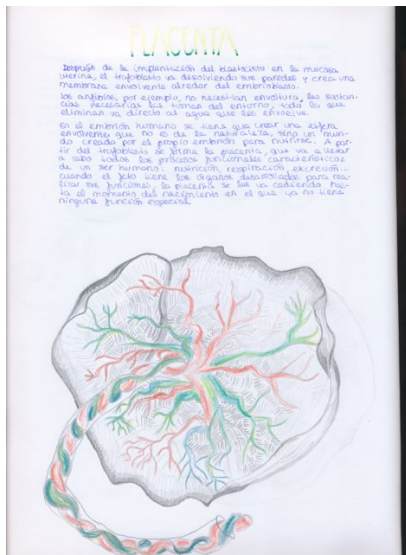 PLACENTA
Después de la implantación del blastocisto en la mucosa
uterina, el trofoblasto va disolviendo sus paredes y crea una
membrana envolvente alredor del embrioblasto.
Los anfibios, por ejemplo, no necesitan envoltura, las sustan-
cias necesarias las toman del entorno, todo lo que
eliminan va directo al agua que les envuelve.
En el embrión humano se tiene que crear una esfera
envolvente que no es de la naturaleza, sino un mun-
do creado por el propio embrión para nutrirse. A par-
tir del trofoblasto se forma la placenta, que va a llevar
a cabo todos los procesos funcionales característicos
de un ser humano: nutrición, respiración, excreción...
cuando el feto tiene los órganos desarrollados para rea-
lizar sus funciones, la placenta se las va cediendo has-
ta el momento del nacimiento en el que ya no tiene
ninguna función especial.